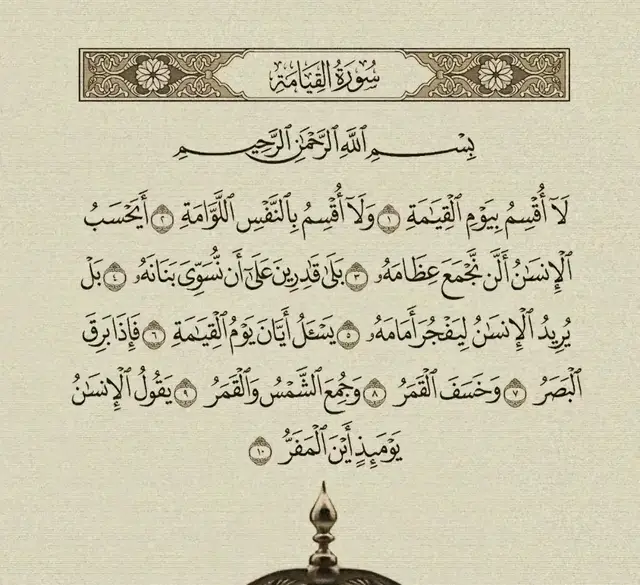 سُورَةُ القِيَامَة
بِسْمِ ٱللَّهِ ٱلرَّحْمَٰنِ ٱلرَّحِيمِ
لَآ أُقْسِمُ بِيَوْمِ ٱلْقِيَٰمَةِ ١ وَلَآ أُقْسِمُ بِٱلنَّفْسِ ٱللَّوَّامَةِ ٢ أَيَحْسَبُ
ٱلْإِنسَٰنُ أَلَّن نَّجْمَعَ عِظَامَهُۥ ٣ بَلَىٰ قَٰدِرِينَ عَلَىٰٓ أَن نُّسَوِّىَ بَنَانَهُۥ ٤ بَلْ
يُرِيدُ ٱلْإِنسَٰنُ لِيَفْجُرَ أَمَامَهُۥ ٥ يَسْـَٔلُ أَيَّانَ يَوْمُ ٱلْقِيَٰمَةِ ٦ فَإِذَا بَرِقَ
ٱلْبَصَرُ ٧ وَخَسَفَ ٱلْقَمَرُ ٨ وَجُمِعَ ٱلشَّمْسُ وَٱلْقَمَرُ ٩ يَقُولُ ٱلْإِنسَٰنُ
يَوْمَئِذٍ أَيْنَ ٱلْمَفَرُّ ١٠